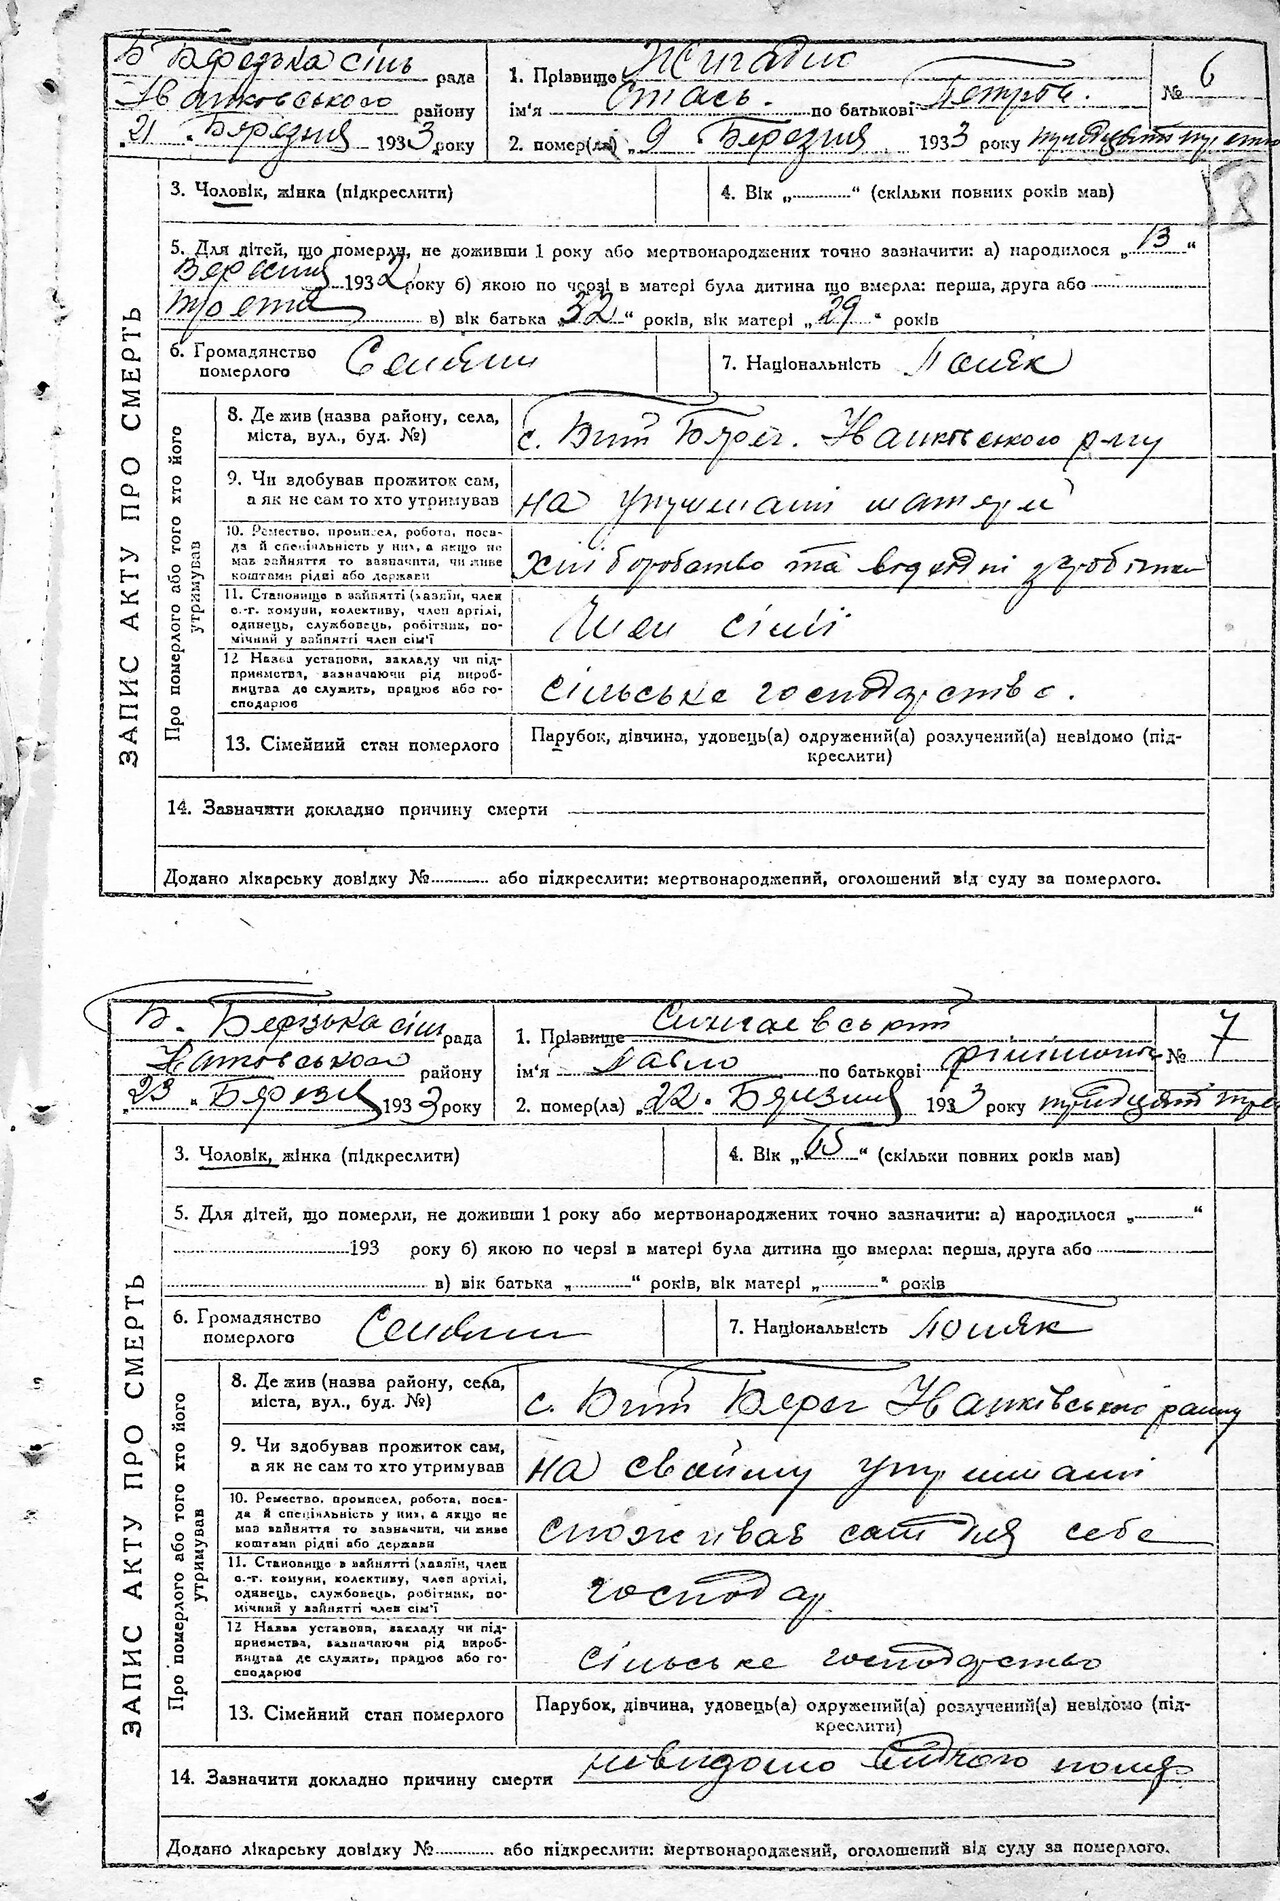 Б Березька сіль рада
Іванковського району
„21„ Березня 1933 року
1. Прізвище
ім'я Стась. по батькові Петров.
2. помер(ла) „9 Березня 1933 року тридцять третього
№ 6
3. Чоловік, жінка (підкреслити)
4. Вік „ “ (скільки повних років мав)
5. Для дітей, що померли, не доживши 1 року або мертвонароджених точно зазначити: а) народилося „13“
Вересня 1932 року б) якою по черзі в матері була дитина що вмерла: перша, друга або
третя в) вік батька „32“ років, вік матері „29“ років
6. Громадянство
померлого Селянин
7. Національність Поляк
ЗАПИС АКТУ ПРО СМЕРТЬ
Про померлого або того хто його
утримував
8. Де жив (назва району, села,
міста, вул., буд. №)
с. Бит Берег. Іванковського р-ну
9. Чи здобував прожиток сам,
а як не сам то хто утримував
на утриманні матери
10. Ремество, промисел, робота, поса-
да й спеціяльність у них, а якщо не
мав зайняття то зазначити, чи живе
коштами рідні або держави
хліборобство та відхідні заробітки
11. Становище в зайнятті (хазяїн, член
с.-г. комуни, колективу, член артілі,
одинець, службовець, робітник, по-
мічний у зайнятті член сім'ї
Член сімії
12 Назва установи, закладу чи під-
приємства, зазначаючи рід вироб-
ництва де служить, працює або го-
сподарює
сільське господарство.
13. Сімейний стан померлого
Парубок, дівчина, удовець(а) одружений(а) розлучений(а) невідомо (під-
креслити)
14. Зазначити докладно причину смерти
Додано лікарську довідку № або підкреслити: мертвонароджений, оголошений від суду за померлого.
Б. Березька сіль рада
Іванковського району
„23“ Березня 1933 року
1. Прізвище Сингаевський
ім'я Павло по батькові
2. помер(ла) „22. Березня 1933 року тридцять
№ 7
3. Чоловік, жінка (підкреслити)
4. Вік „65“ (скільки повних років мав)
5. Для дітей, що померли, не доживши 1 року або мертвонароджених точно зазначити: а) народилося „ “
193 року б) якою по черзі в матері була дитина що вмерла: перша, друга або
в) вік батька „ “ років, вік матері „ “ років
6. Громадянство
померлого Селянин
7. Національність Поляк
ЗАПИС АКТУ ПРО СМЕРТЬ
Про померлого або того хто його
утримував
8. Де жив (назва району, села,
міста, вул., буд. №)
с. Бит Берег Іванківського району
9. Чи здобував прожиток сам,
а як не сам то хто утримував
на своїму утриманні
10. Ремество, промисел, робота, поса-
да й спеціяльність у них, а якщо не
мав зайняття то зазначити, чи живе
коштами рідні або держави
споживав сам для себе
11. Становище в зайнятті (хазяїн, член
с.-г. комуни, колективу, член артілі,
одинець, службовець, робітник, по-
мічний у зайнятті член сім'ї
господар
12 Назва установи, закладу чи під-
приємства, зазначаючи рід вироб-
ництва де служить, працює або го-
сподарює
сільське господарство
13. Сімейний стан померлого
Парубок, дівчина, удовець(а) одружений(а) розлучений(а) невідомо (під-
креслити)
14. Зазначити докладно причину смерти невидомо відчого помер
Додано лікарську довідку № або підкреслити: мертвонароджений, оголошений від суду за померлого.